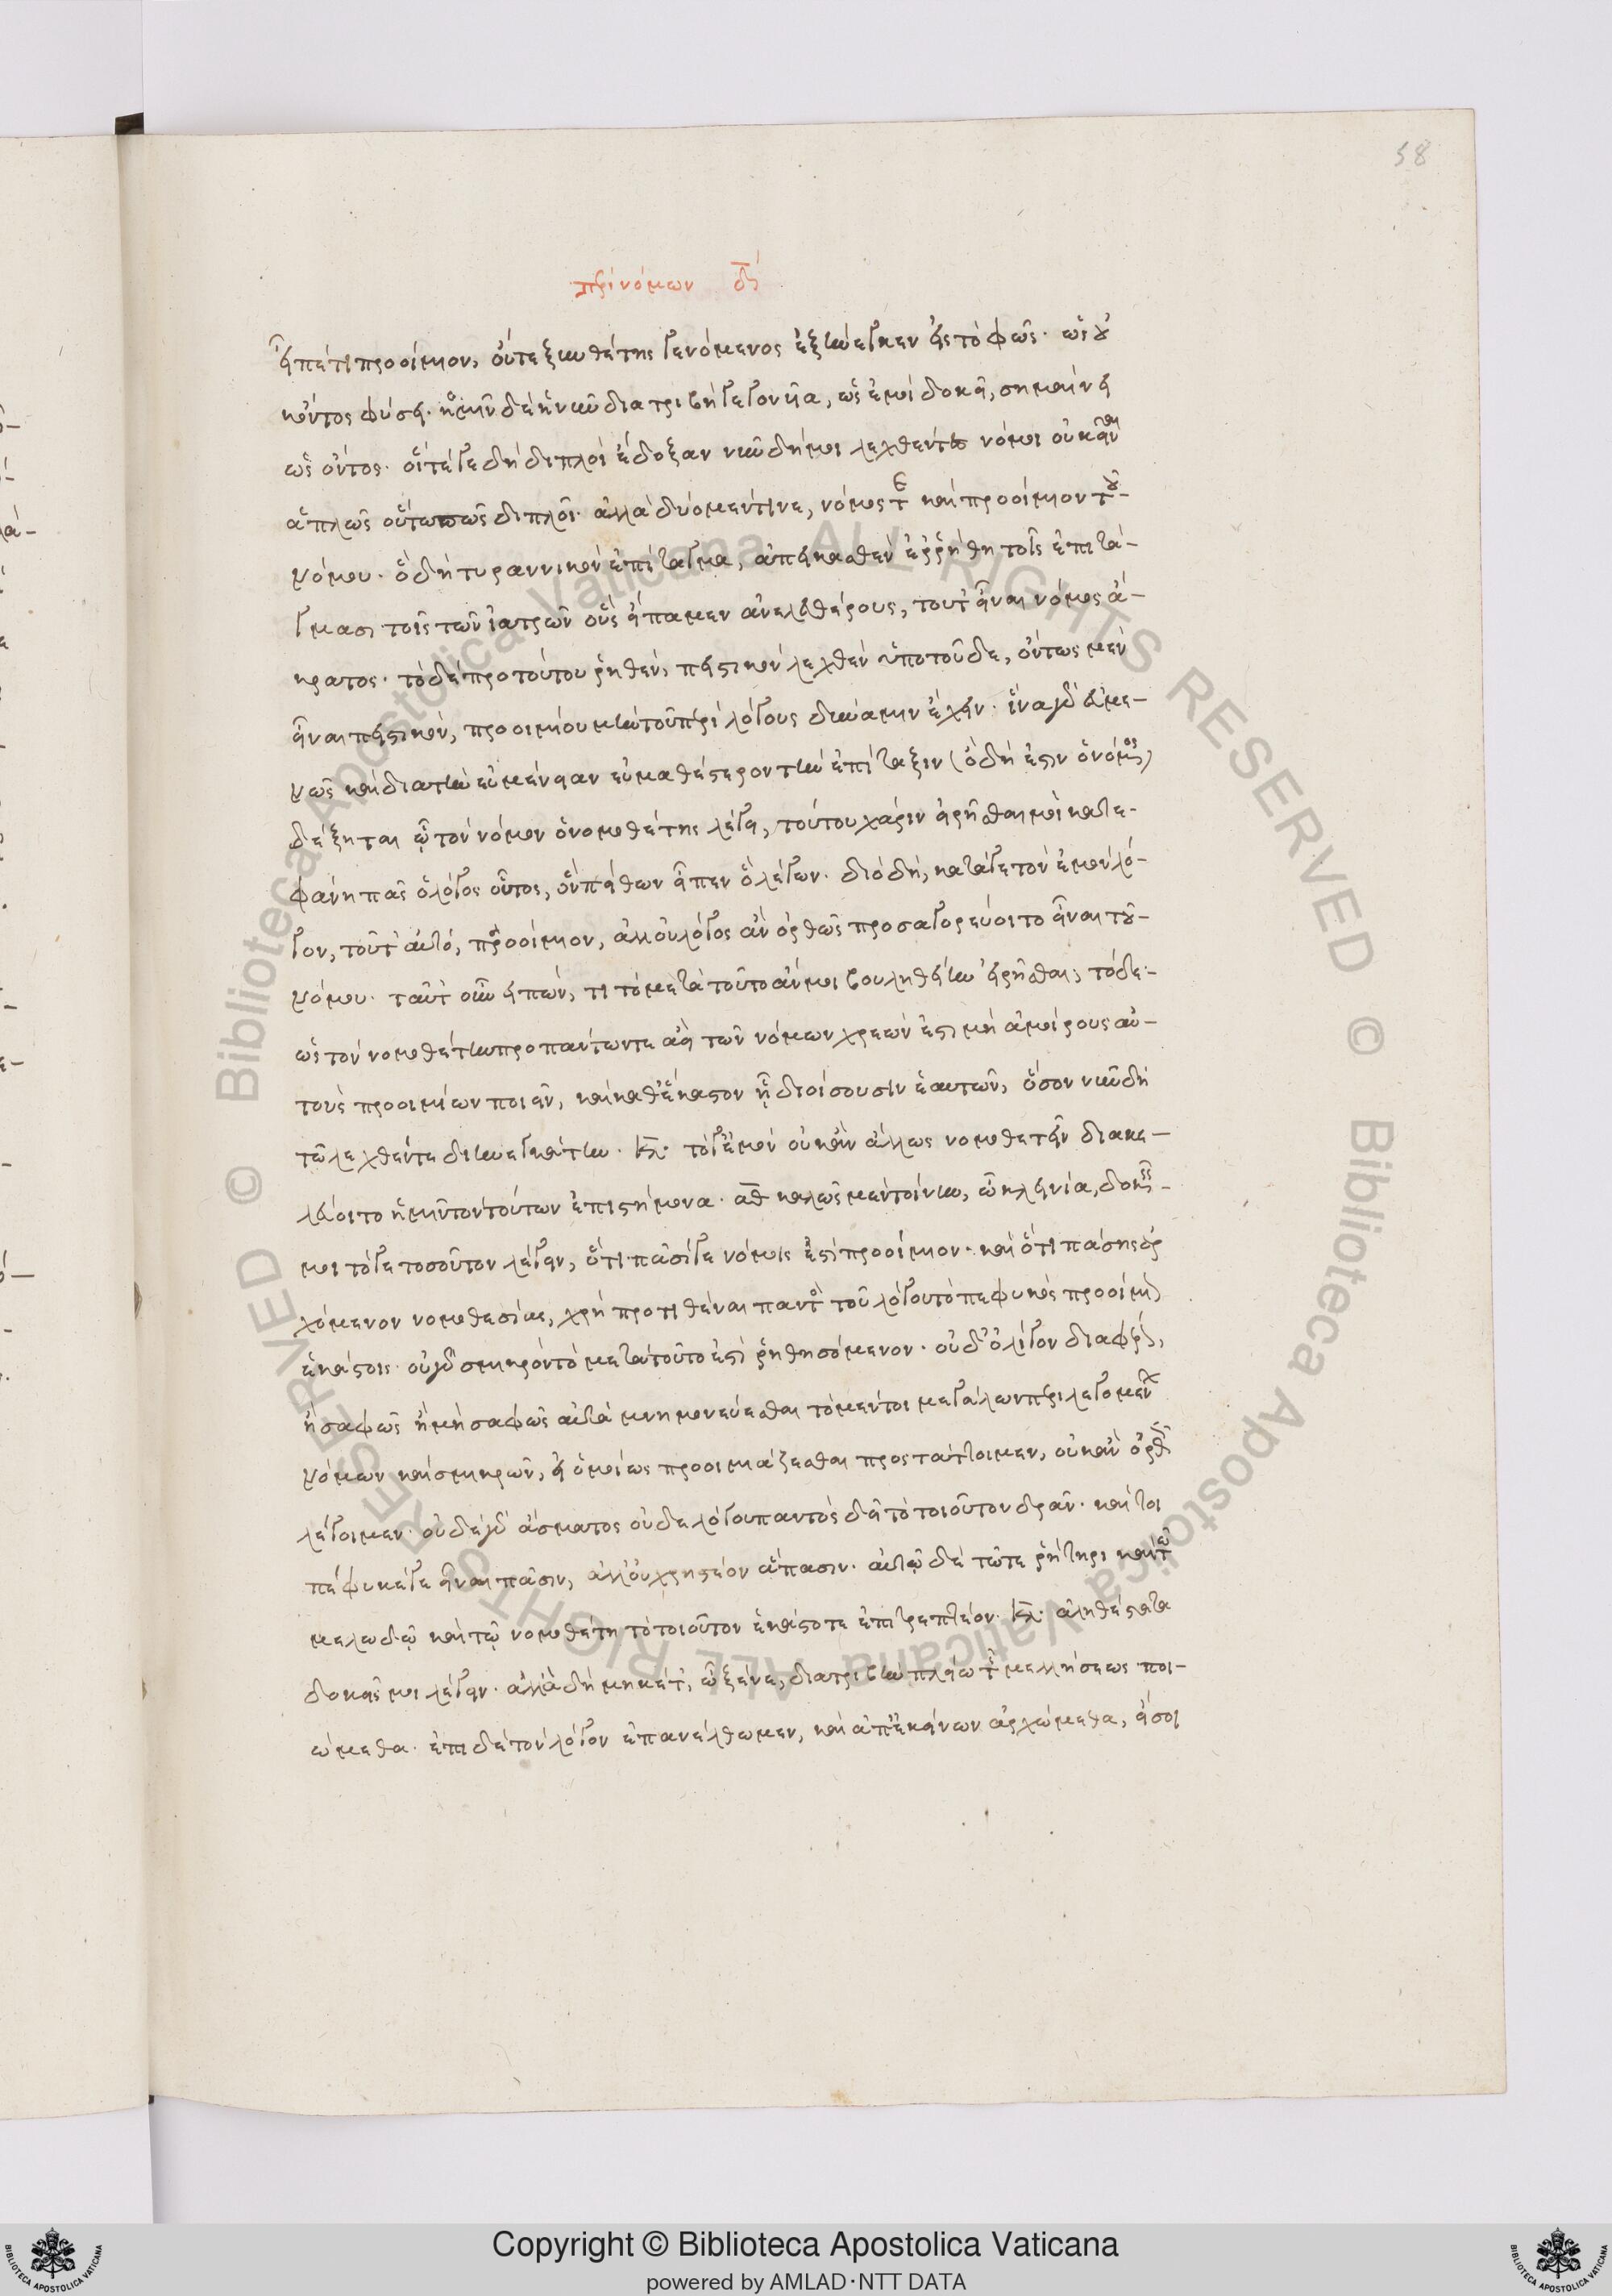 58
περὶ νόμων δʹ
εἶπέ τι προοίμιον, οὔτε ξυνθέτης γενόμενος ἐξήνεγκεν εἰς τὸ φῶς· ὡς οὐ
κ ὄντος φύσει· ἡμῖν δὲ ἡ νῦν διατριβὴ γεγονυῖα, ὡς ἐμοὶ δοκεῖ, σημαίνει
ὡς ὄντος· οἵ τέ γε δὴ διπλοῖ ἔδοξαν νῦν δή μοι λεχθέντες νόμοι οὐκ εἶναι
ἁπλῶς οὕτω πως διπλοῖ· ἀλλὰ δύο μέν τινε, νόμος τε καὶ προοίμιον τοῦ-
νόμου· ὃ δὴ τυραννικὸν ἐπίταγμα, ἀπεικασθὲν ἐρρήθη τοῖς ἐπιτά-
γμασι τοῖς τῶν ἰατρῶν οὓς εἴπαμεν ἀνελευθέρους, τοῦτ' εἶναι νόμος ἄ-
κρατος· τὸ δὲ πρὸ τούτου ῥηθὲν, πειστικὸν λεχθὲν ὑπὸ τοῦδε, ὄντως μὲν
εἶναι πειστικὸν, προοιμίου μὴν τοῦ περὶ λόγους δύναμιν ἔχειν· ἵνα γὰρ εὐμε-
νῶς καὶ διὰ τὴν εὐμένειαν εὐμαθέστερον τὴν ἐπίταξιν (ὃ δή ἐστιν ὁ νόμος)
δέξηται ᾧ τὸν νόμον ὁ νομοθέτης λέγει, τούτου χάριν εἰρῆσθαί μοι κατε-
φάνη πᾶς ὁ λόγος οὗτος, ὃν πείθων εἶπεν ὁ λέγων· διὸ δὴ, κατά γε τὸν ἐμὸν λό-
γον, τοῦτ' αὐτό, προοίμιον, ἀλλ' οὐ λόγος ἂν ὀρθῶς προσαγορεύοιτο εἶναι τοῦ-
νόμου· ταῦτ' οὖν εἰπὼν, τί τὸ μετὰ τοῦτο ἄν μοι βουληθείην εἰρῆσθαι; τόδε·
ὡς τὸν νομοθέτην πρὸ πάντων τε ἀεὶ τῶν νόμων χρεών ἐστι μὴ ἀμοίρους αὐ-
τοὺς προοιμίων ποιεῖν, καὶ καθ' ἕκαστον ᾗ διοίσουσιν ἑαυτῶν, ὅσον νῦν δὴ
τὼ λεχθέντε διηνεγκάτην. ΚΛ. τό γ' ἐμὸν οὐκ ἂν ἄλλως νομοθετεῖν διακε-
λεύοιτο ἡμῖν τὸν τούτων ἐπιστήμονα· ΑΘ καλῶς μὲν τοίνυν, ὦ κλεινία, δοκεῖς-
μοι τό γε τοσοῦτον λέγειν, ὅτι πᾶσί γε νόμοις ἔστι προοίμιον· καὶ ὅτι πάσης ἀρ
χόμενον νομοθεσίας, χρὴ προτιθέναι παντὸς τοῦ λόγου τὸ πεφυκὸς προοίμιον
ἑκάστοις· οὐ γὰρ σμικρὸν τὸ μετὰ τοῦτό ἐστι ῥηθησόμενον· οὐδ' ὀλίγον διαφέρον,
ἢ σαφῶς ἢ μὴ σαφῶς αὐτὰ μνημονεύεσθαι τὸ μέντοι μεγάλων πέρι λεγομένων
νόμων καὶ σμικρῶν, εἰ ὁμοίως προοιμιάζεσθαι προστάττοιμεν, οὐκ ἂν ὀρθῶς
λέγοιμεν· οὐδὲ γὰρ ᾄσματος οὐδὲ λόγου παντὸς δεῖ τὸ τοιοῦτον δρᾶν· καίτοι
πέφυκέ γε εἶναι πᾶσιν, ἀλλ' οὐ χρηστέον ἅπασιν· αὐτῷ δὲ τῷ τε ῥήτορι καὶ τῷ
μελῳδῷ καὶ τῷ νομοθέτῃ τὸ τοιοῦτον ἑκάστοτε ἐπιτρεπτέον· ΚΛ· ἀληθέστατα
δοκεῖς μοι λέγειν· ἀλλὰ δὴ μηκέτ', ὦ ξένε, διατριβὴν πλείω τῆς μελλήσεως ποι-
ώμεθα· ἐπὶ δὲ τὸν λόγον ἐπανέλθωμεν, καὶ ἀπ' ἐκείνων ἀρχώμεθα, εἴ σοι
Copyright © Biblioteca Apostolica Vaticana
powered by AMLAD·NTT DATA